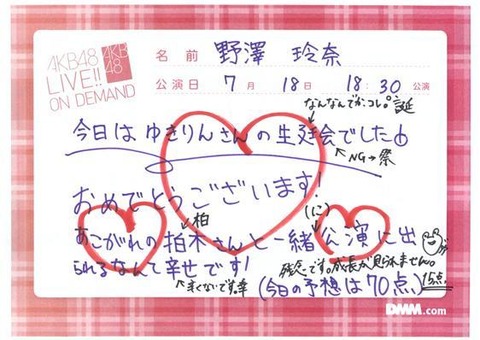 AKB48
LIVE!!
ON DEMAND
AKB
48
名前 野澤 玲奈
公演日 7月 18日 18:30 公演
なんなんでか、コレ。誕
今日はゆきりんさんの生廷会でした
NG→祭
おめでとうございます!
柏
(に)
あこがれの柏木さんと一緒公演に出
られるなんて幸せです!
残念です。成長が見られません。
まくないです。幸
(今日の予想は70点)
15点
DMM.com